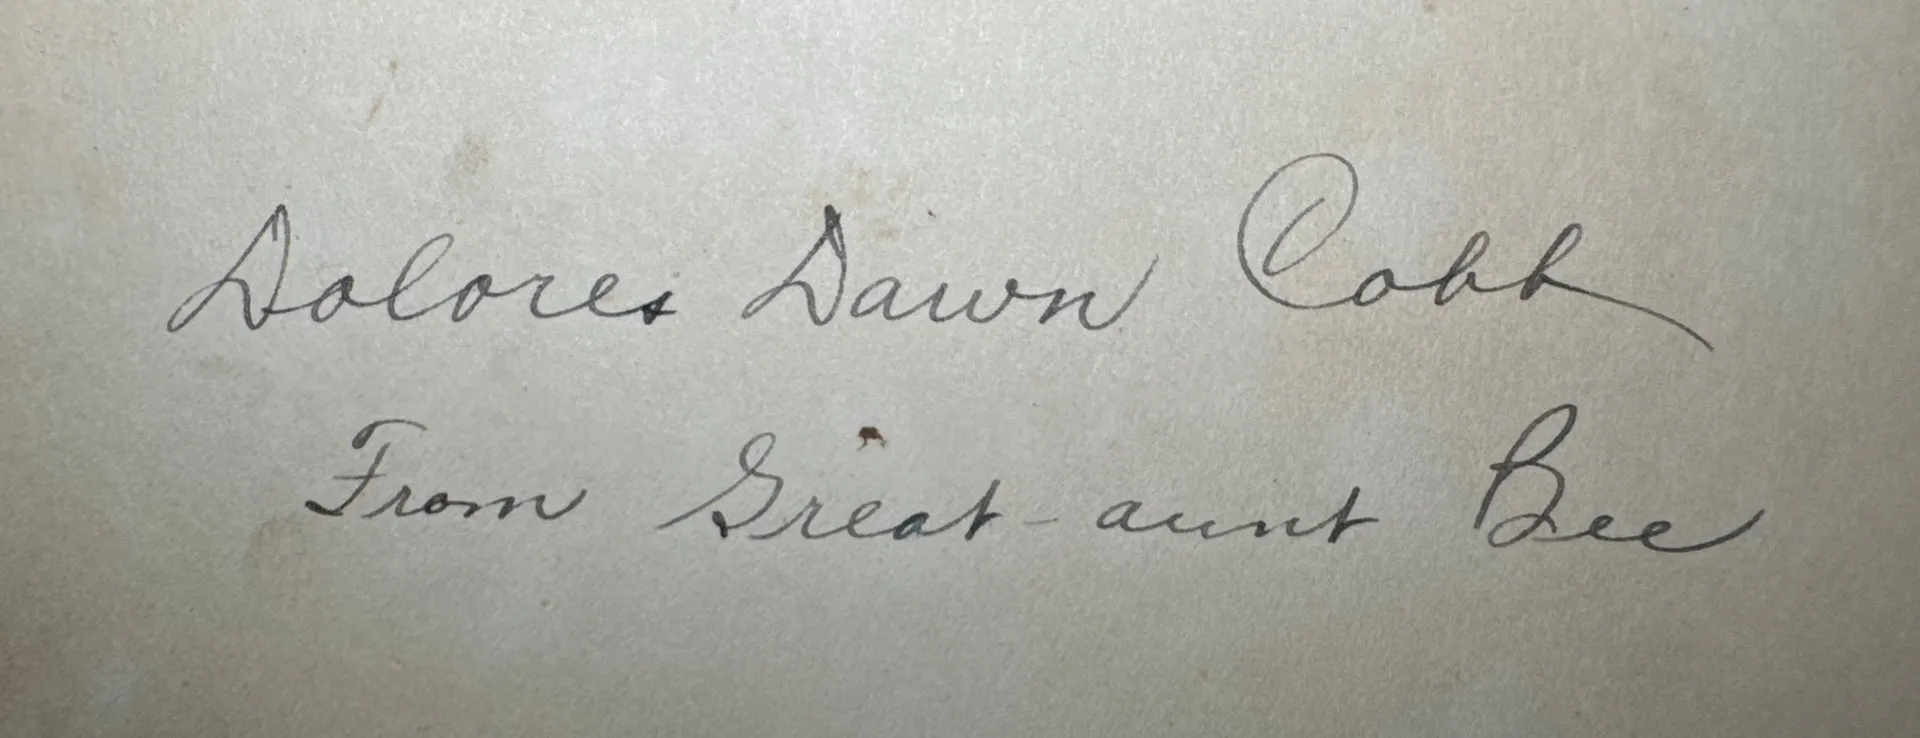 Dolores Dawn Cobb
From Great-aunt Bee